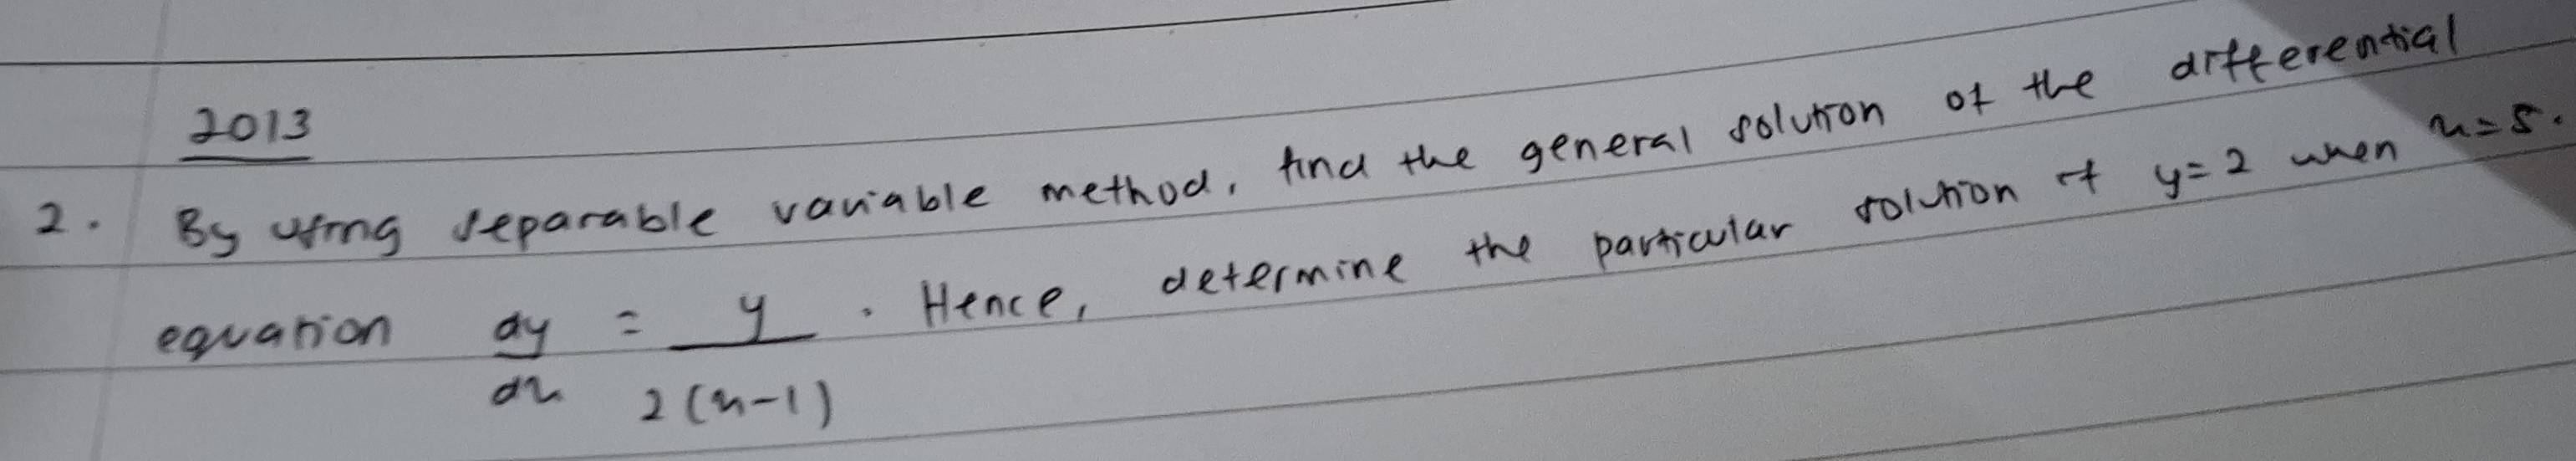 2013
2. By using separable variable method, find the general solution of the differential
equation dy/dx = y/2(x-1). Hence, determine the particular solution if y=2 when x=5.